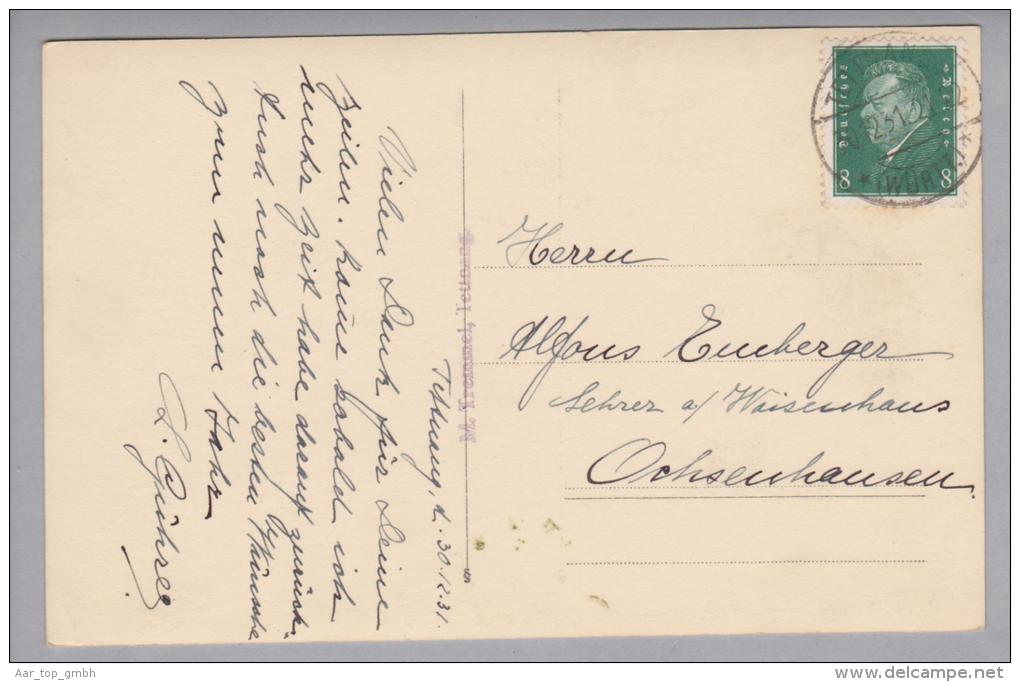 Tettnang, d. 30.12.31.
Vielen Dank für Deine
Zeilen. Komme sobald ich
mehr Zeit habe darauf zurück.
Auch noch die besten Wünsche
zum neuen Jahr
L. Gührer
M. Kremmel, Tettnang.
56
Deutsches Reich
8 8
31.12.
(WÜRTT.)
Herrn
Alfons Emberger
Lehrer a/ Waisenhaus
Ochsenhausen.
Aar_top_gmbh
www.delcampe.net